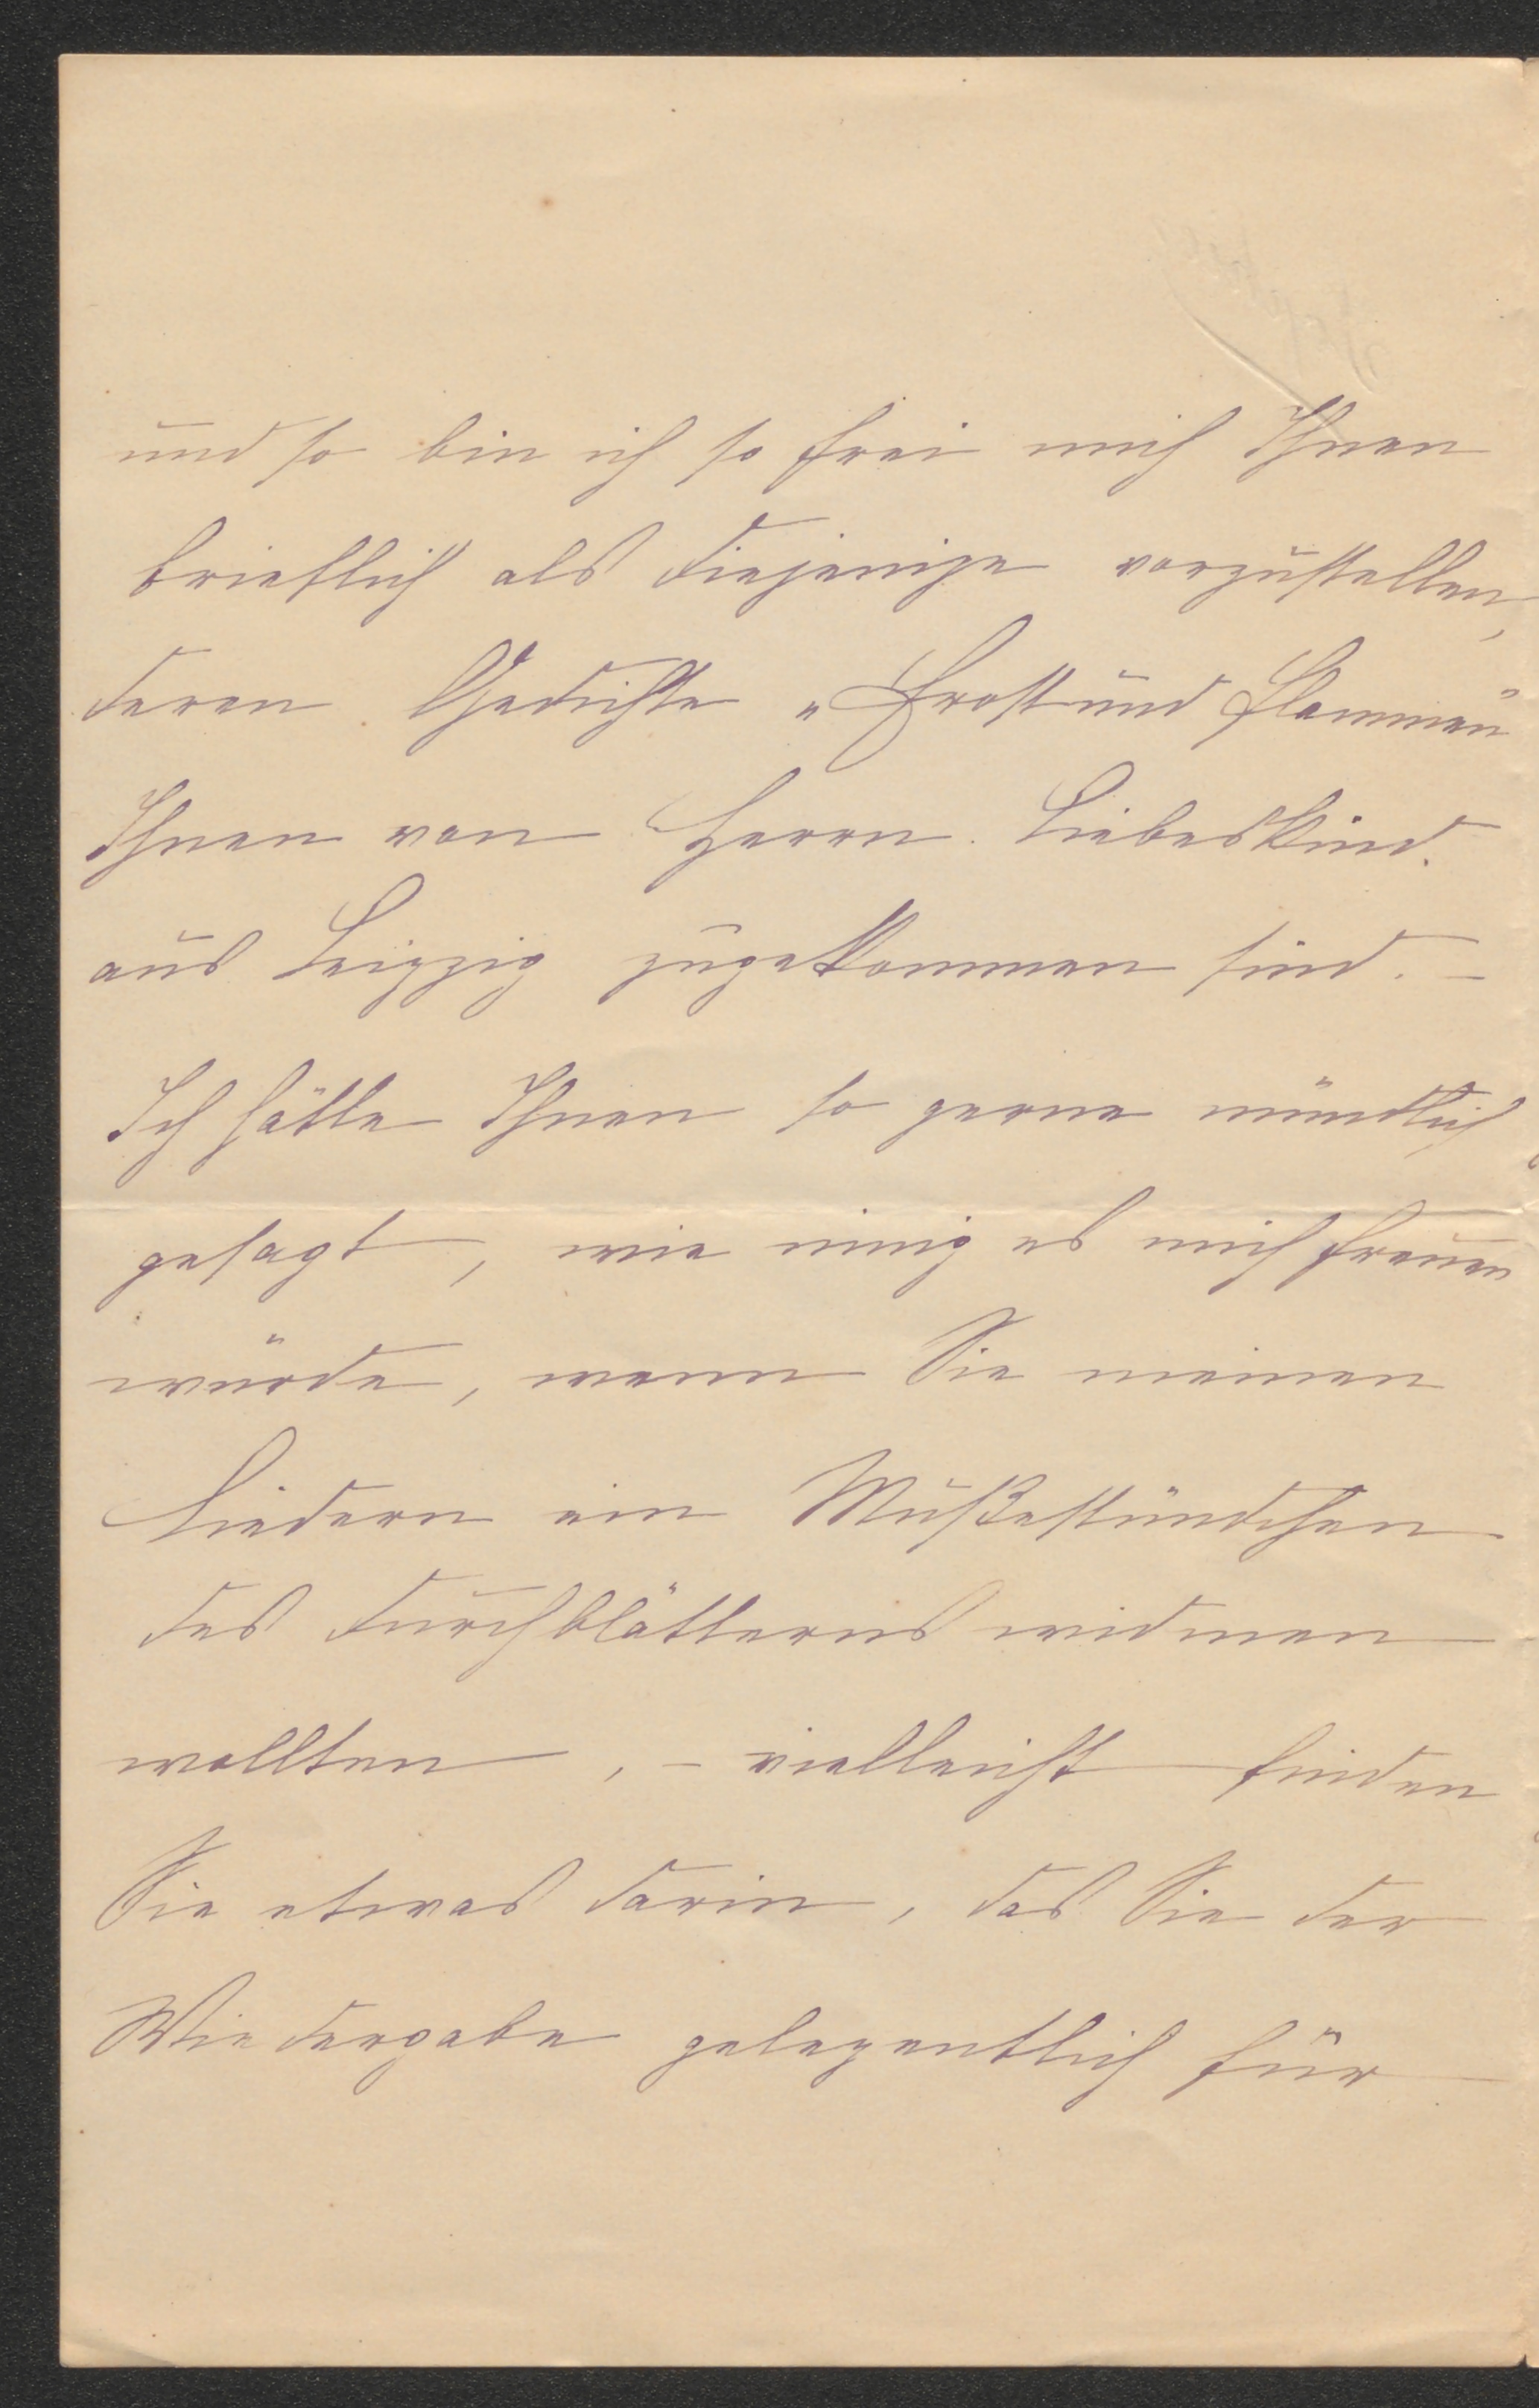 und so bin ich so frei mich Ihnen
brieflich als diejenige vorzustellen,
deren Gedichte „Frost und Flammen"
Ihnen von Herrn Liebeskind
aus Leipzig zugekommen sind. –
Ich hätte Ihnen so gerne mündlich
gesagt, wie innig es mich freuen
würde, wenn Sie meinen
Liedern ein Mußestündchen
des Durchblätterns widmen
wollten, – vielleicht finden
Sie etwas darin, das Sie der
Wiedergabe gelegentlich für